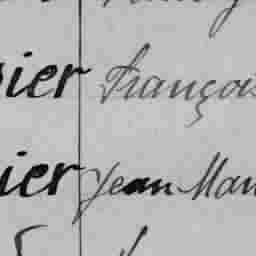 ier Françoi
ier Jean Mar